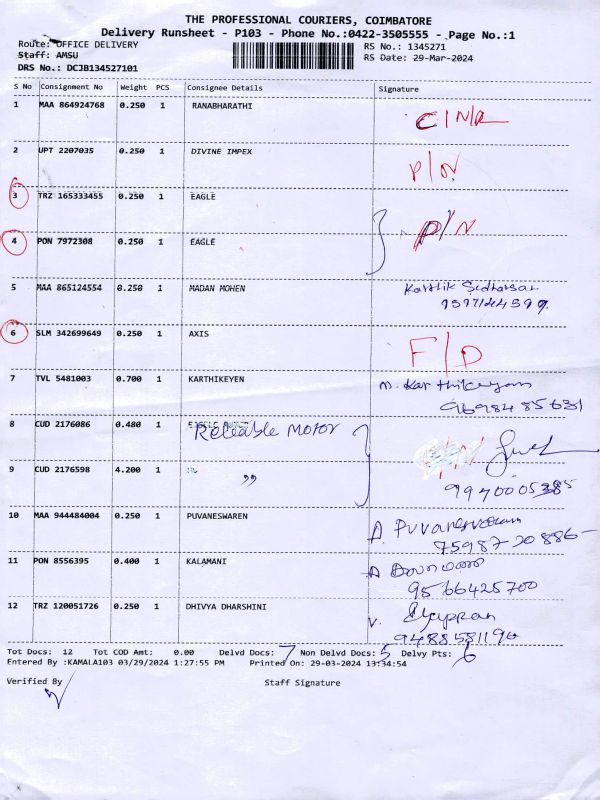 THE PROFESSIONAL COURIERS, COIMBATORE
Delivery Runsheet - P103 - Phone No.:0422-3505555 - Page No.:1
Route: OFFICE DELIVERY
RS No.: 1345271
Staff: AMSU
RS Date: 29-Mar-2024
DRS No.: DCJB134527101
S No Consignment No Weight PCS Consignee Details Signature
1 MAA 864924768 0.250 1 RANABHARATHI C/N/R
2 UPT 2207035 0.250 1 DIVINE IMPEX P/N
3 TRZ 165333455 0.250 1 EAGLE
P/N
4 PON 7972308 0.250 1 EAGLE
5 MAA 865124554 0.250 1 MADAN MOHEN Karthik
6 SLM 342699649 0.250 1 AXIS F/D
7 TVL 5481003 0.700 1 KARTHIKEYEN M. Karthikeyan
9698485631
8 CUD 2176086 0.480 1 Reliable Motor
9 CUD 2176598 4.200 1 "
9940005385
10 MAA 944484004 0.250 1 PUVANESWAREN A. Puvaneswaran
7598720886
11 PON 8556395 0.400 1 KALAMANI
9566425700
12 TRZ 120051726 0.250 1 DHIVYA DHARSHINI V.
Tot Docs: 12 Tot COD Amt: 0.00 Delvd Docs: 7 Non Delvd Docs: 5 Delvy Pts: 6
Entered By :KAMALA103 03/29/2024 1:27:55 PM Printed On: 29-03-2024 13:34:54
Verified By Staff Signature